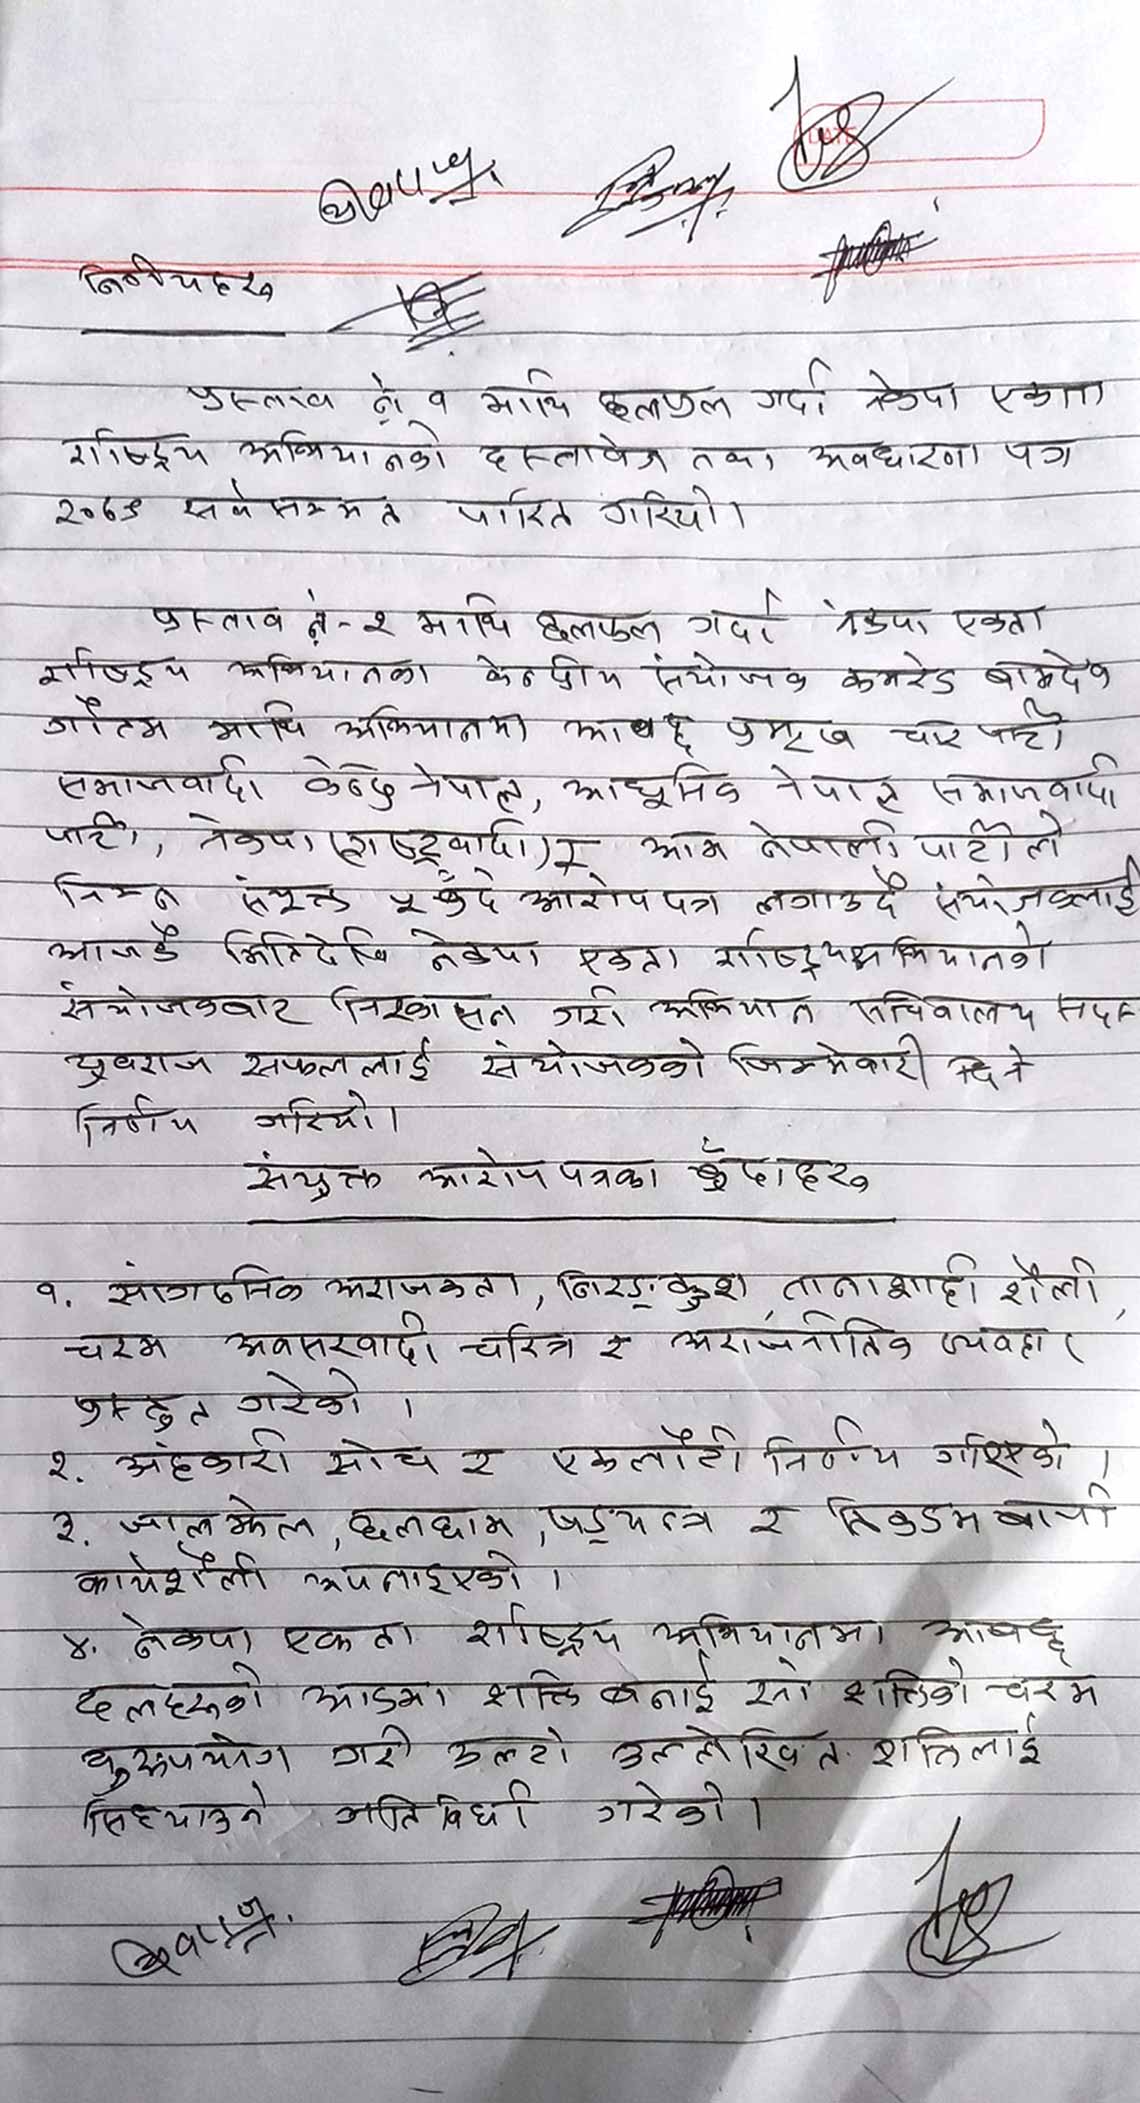 निर्णयहरू
प्रस्ताव नं १ माथि छलफल गर्दा नेकपा एकता
राष्ट्रिय अभियानको दस्तावेज तथा अवधारणा पत्र
२०७९ सर्वसम्मत पारित गरियो।
प्रस्ताव नं-२ माथि छलफल गर्दा नेकपा एकता
राष्ट्रिय अभियानका केन्द्रीय संयोजक कमरेड बामदेव
गौतम माथि अभियानमा आबद्द प्रमुख चार पार्टी
समाजवादी केन्द्र नेपाल, आधुनिक नेपाल समाजवादी
पार्टी, नेकपा (राष्ट्रवादी) र आम नेपाली पार्टीले
निम्न संयुक्त ४ बुँदे आरोपपत्र लगाउदै संयोजकलाई
आजकै मितिदेखि नेकपा एकता राष्ट्रिय अभियानको
संयोजकबाट निस्कासन गरी अभियान सचिवालय सदस्य
युवराज सफललाई संयोजकको जिम्मेवारी दिने
निर्णय गरियो।
संयुक्त आरोपपत्रका बुँदाहरू
१. सांगठनिक अराजकता, निरङ्कुश, तानाशाही शैली,
चरम अवसरवादी चरित्र र अराजनीतिक व्यवहार
प्रस्तुत गरेको ।
२. अहंकारी सोच र एकलौटी निर्णय गरिएको ।
३. जालझेल, छलछाम, षड्यन्त्र र तिकडमबाजी
कार्यशैली अपनाइएको ।
४. नेकपा एकता राष्ट्रिय अभियानमा आबद्द
दलहरूको आडमा शक्ति बनाई सो शक्तिको चरम
दुरूपयोग गरी उल्टो उल्लेखित शक्तिलाई
सिध्याउने गतिविधी गरेको।